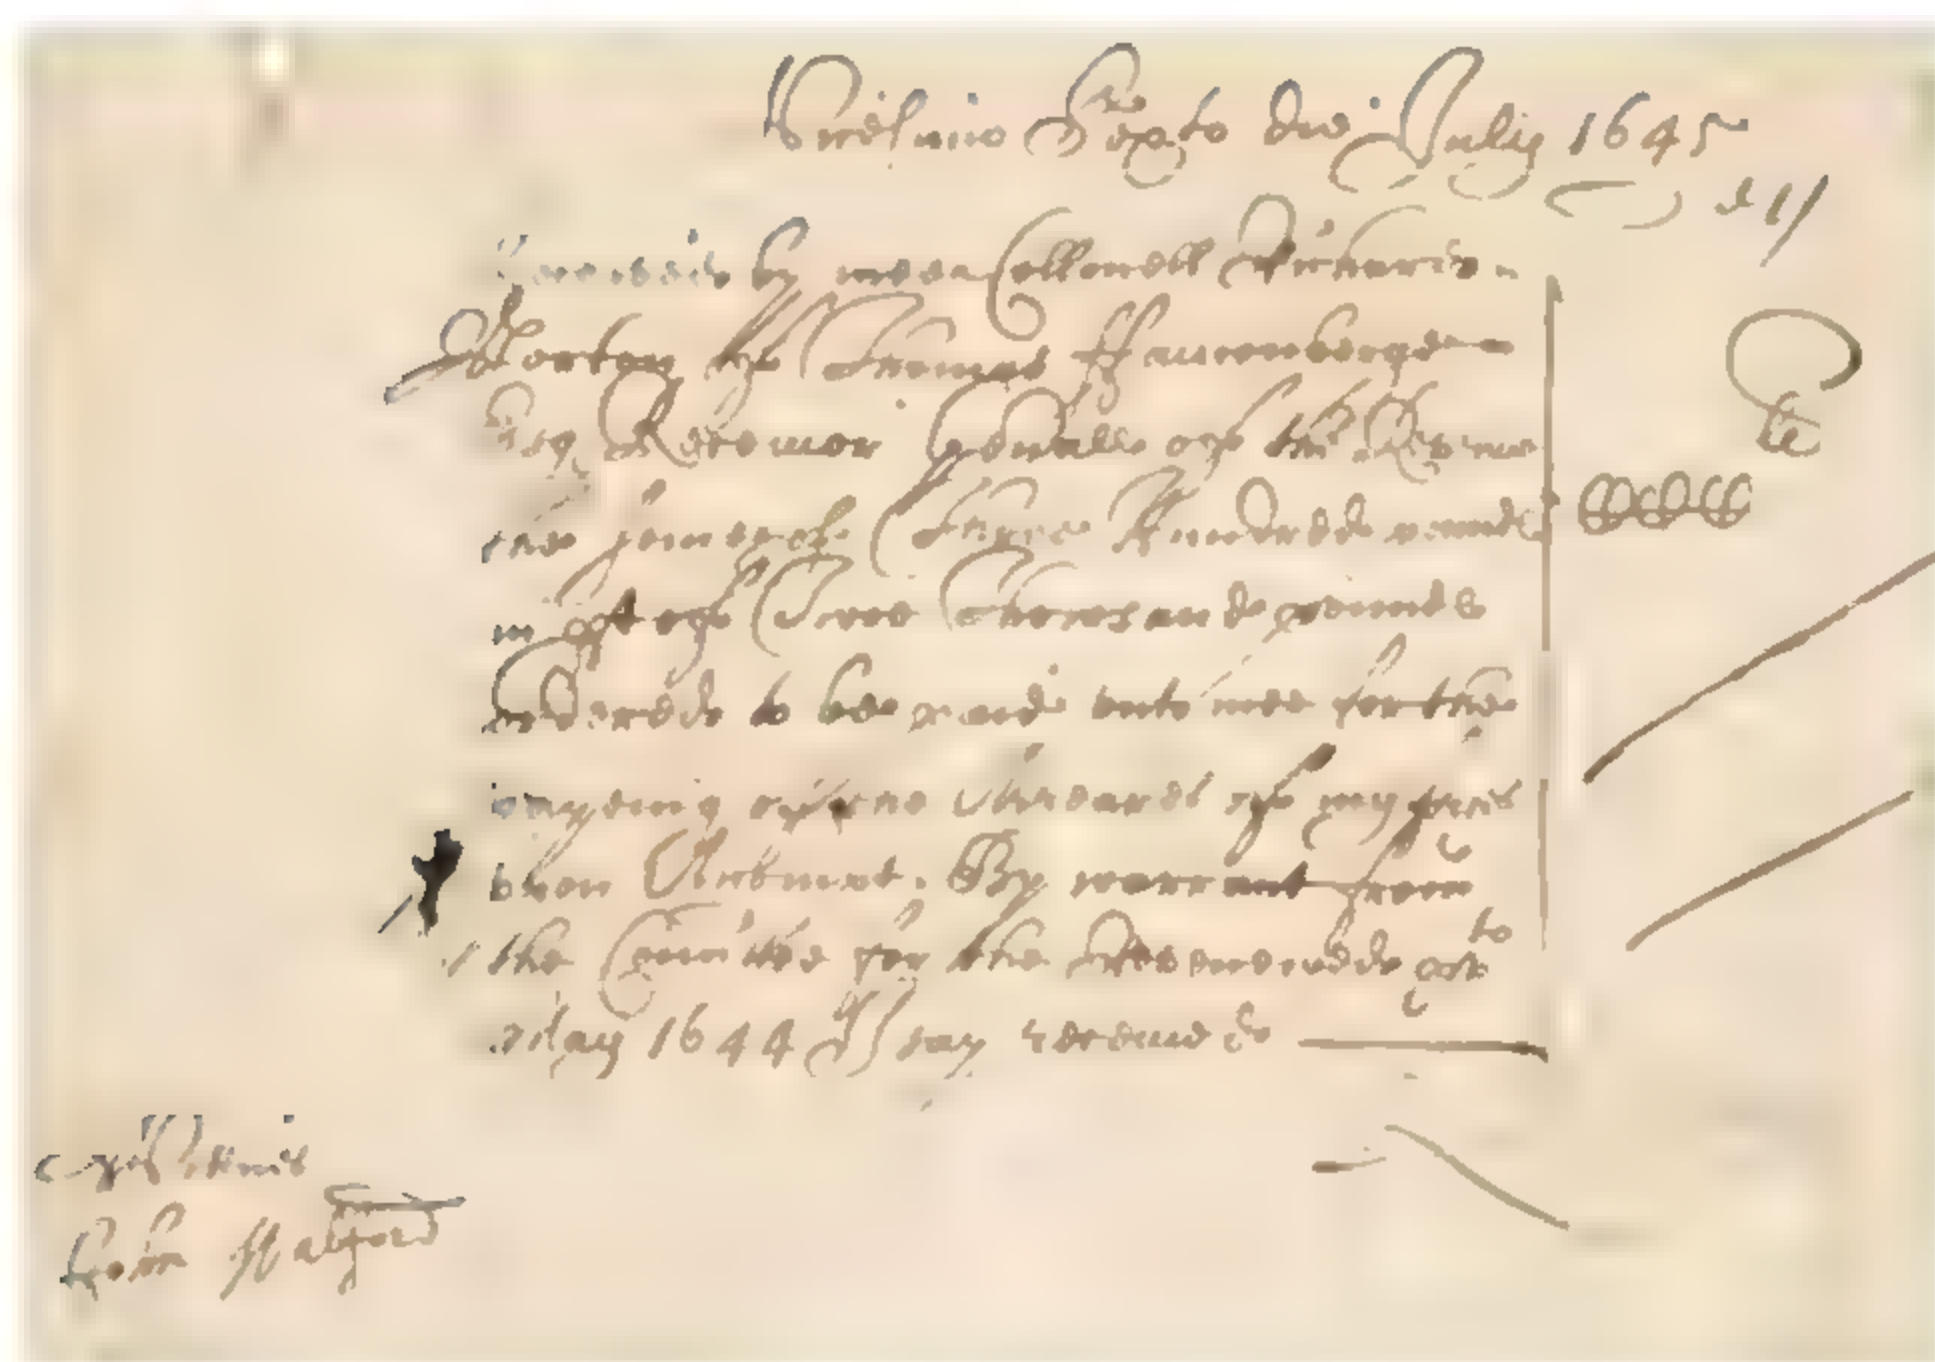 Vicesimo Sexto die Julij 1645
Received by mee Collonell Richard
Norton of Thomas ffauconberge
Esq Receivor Generall of the Revenue
the some of Three Hundred pounds
in pt of Three Thousand pounds
ordered to bee paid unto mee for the
of the Arreares of my
upon Accompt. By warrant from
the Comittee for the Revenewe dat
May 1644 I say received
li
CCC
John Halford